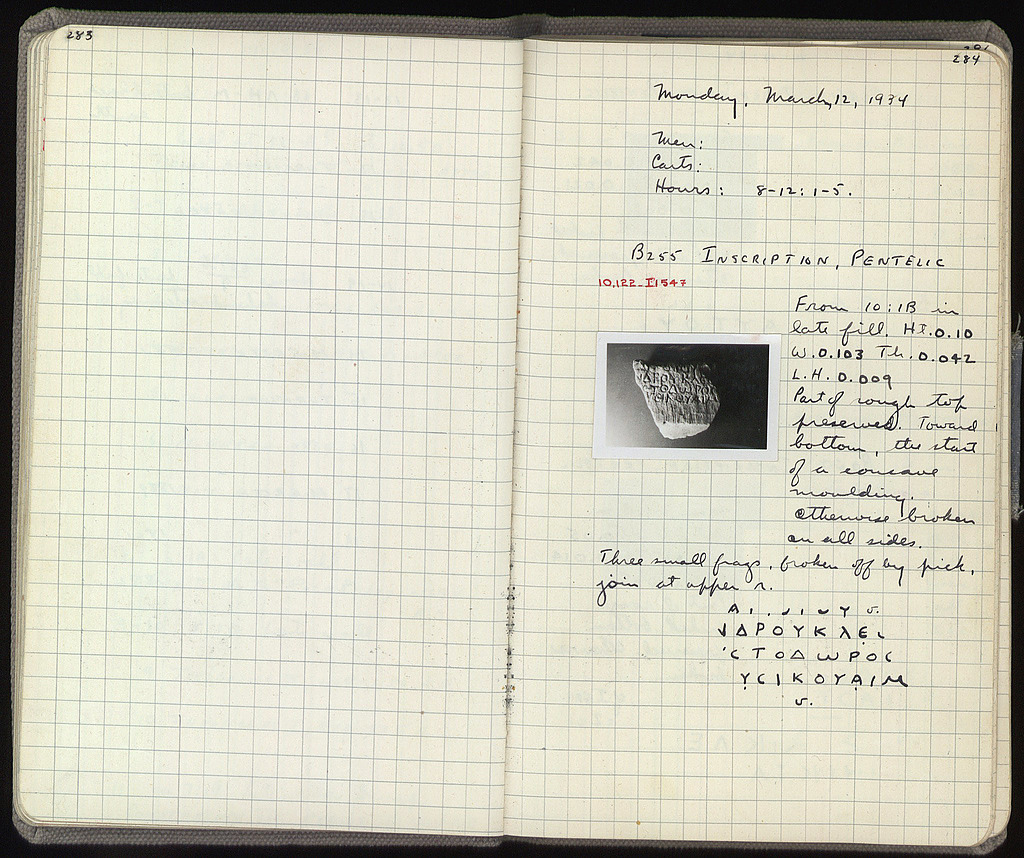 283
284
Monday, March 12, 1934
Men:
Carts:
Hours: 8-12: 1-5.
B255 INSCRIPTION, PENTELIC
10,122 I 1547
From 10:1B in
late fill. HT. 0.10
W. 0.103 Th. 0.042
L.H. 0.009
Part of rough top
preserved. Toward
bottom, the start
of a concave
moulding.
Otherwise broken
on all sides.
Three small frags, broken off by pick,
join at upper r.
ΔΡΟΥΚΛΕ
ϹΤΟΔΩΡΟϹ
ΥϹΙΚΟΥΑΙΜ
v.